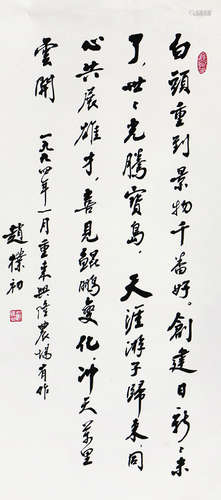 白頭重到景物千番好。創建日新〻未
了，世〻光騰寶島，天涯游子歸來，同
心共展雄才，喜見鯤鵬變化，冲天萬里
雲開
一九九四年一月重來興隆農場有作
趙樸初